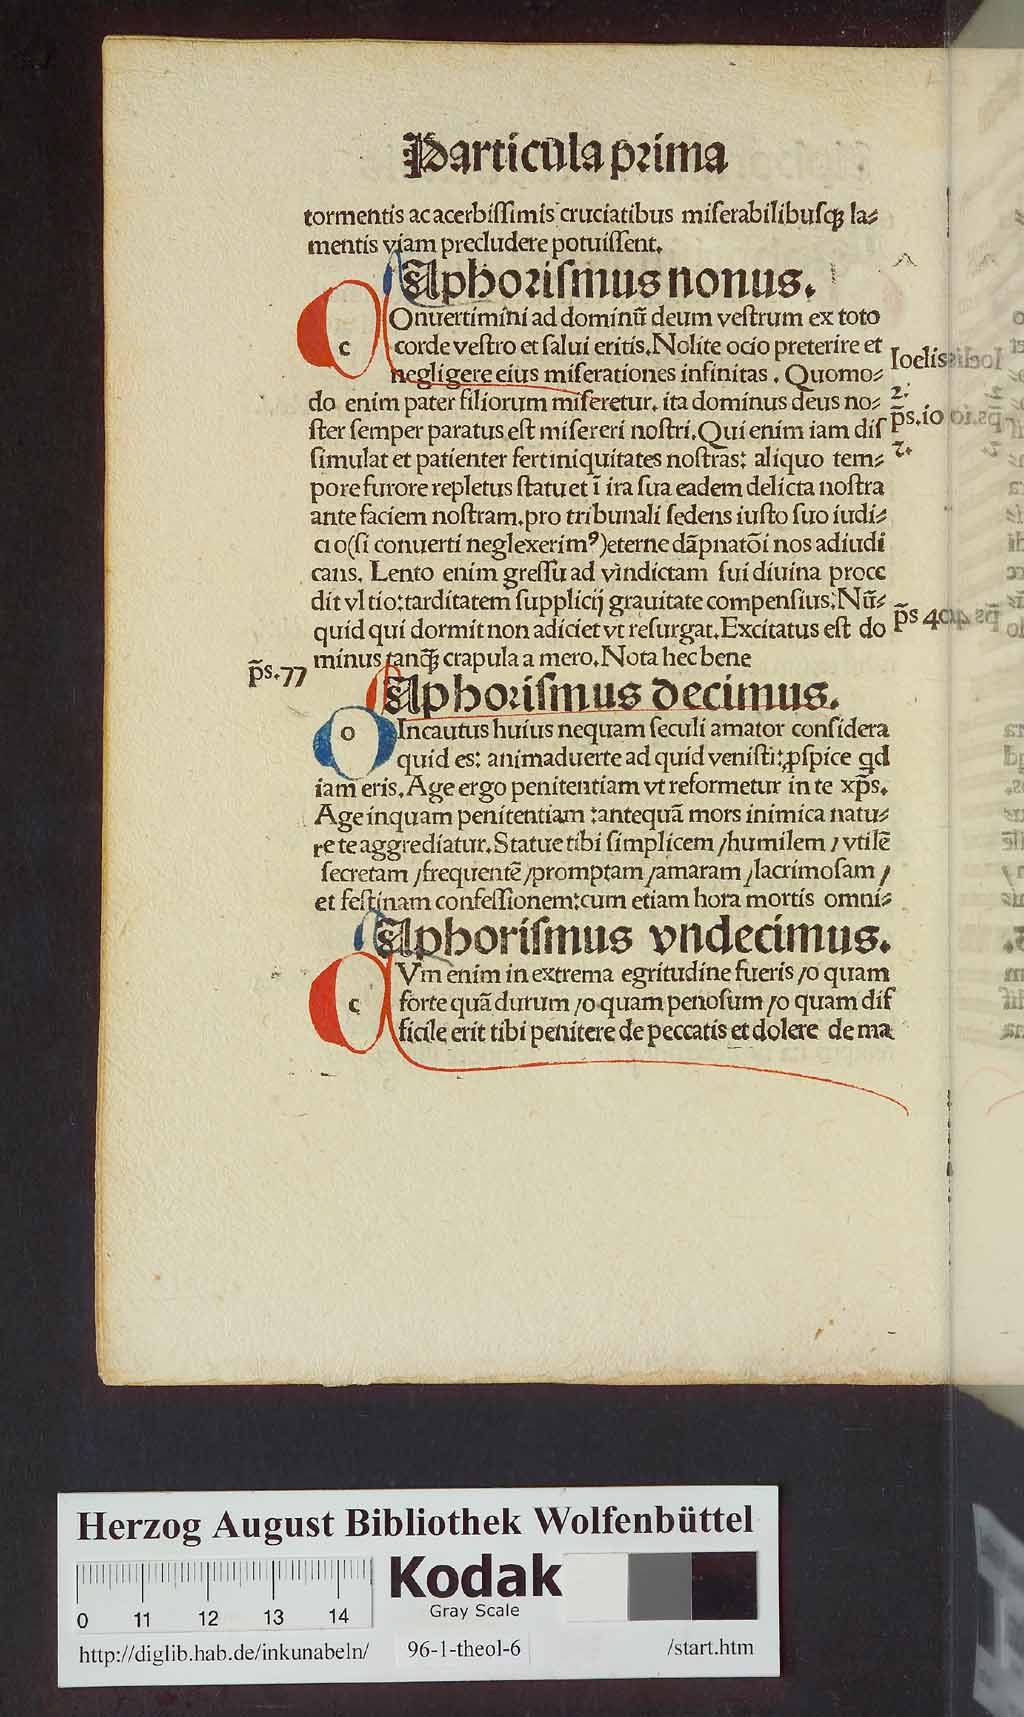 Particula prima
tormentis ac acerbissimis cruciatibus miserabilibusqꝫ la⸗
mentis viam precludere potuissent.
Aphorismus nonus.
COnuertimini ad dominū deum vestrum ex toto
corde vestro et salui eritis. Nolite ocio preterire et
negligere eius miserationes infinitas. Quomo⸗
Ioelis
2.
do enim pater filiorum miseretur. ita dominus deus no⸗
ster semper paratus est misereri nostri. Qui enim iam dis
p̄s.io
2.
simulat et patienter fert iniquitates nostras: aliquo tem⸗
pore furore repletus statuet ī ira sua eadem delicta nostra
ante faciem nostram. pro tribunali sedens iusto suo iudi⸗
cio (si conuerti neglexerimꝰ) eterne dāpnatōi nos adiudi
cans. Lento enim gressu ad vindictam sui diuina proce
dit vltio: tarditatem supplicij grauitate compensius: Nū⸗
quid qui dormit non adiciet vt resurgat. Excitatus est do
p̄s 40
minus tanqꝫ crapula a mero. Nota hec bene
p̄s.77
Aphorismus decimus.
O Incautus huius nequam seculi amator considera
quid es: animaduerte ad quid venisti: ꝑspice qd
iam eris. Age ergo penitentiam vt reformetur in te xp̄s.
Age inquam penitentiam : antequā mors inimica natu⸗
re te aggrediatur. Statue tibi simplicem / humilem / vtilē
secretam / frequentē / promptam / amaram / lacrimosam /
et festinam confessionem: cum etiam hora mortis omni⸗
Aphorismus vndecimus.
CVm enim in extrema egritudine fueris / o quam
forte quā durum / o quam penosum / o quam dif
ficile erit tibi penitere de peccatis et dolere de ma
Herzog August Bibliothek Wolfenbüttel
0 11 12 13 14
Kodak
Gray Scale
http://diglib.hab.de/inkunabeln/ 96-1-theol-6 /start.htm